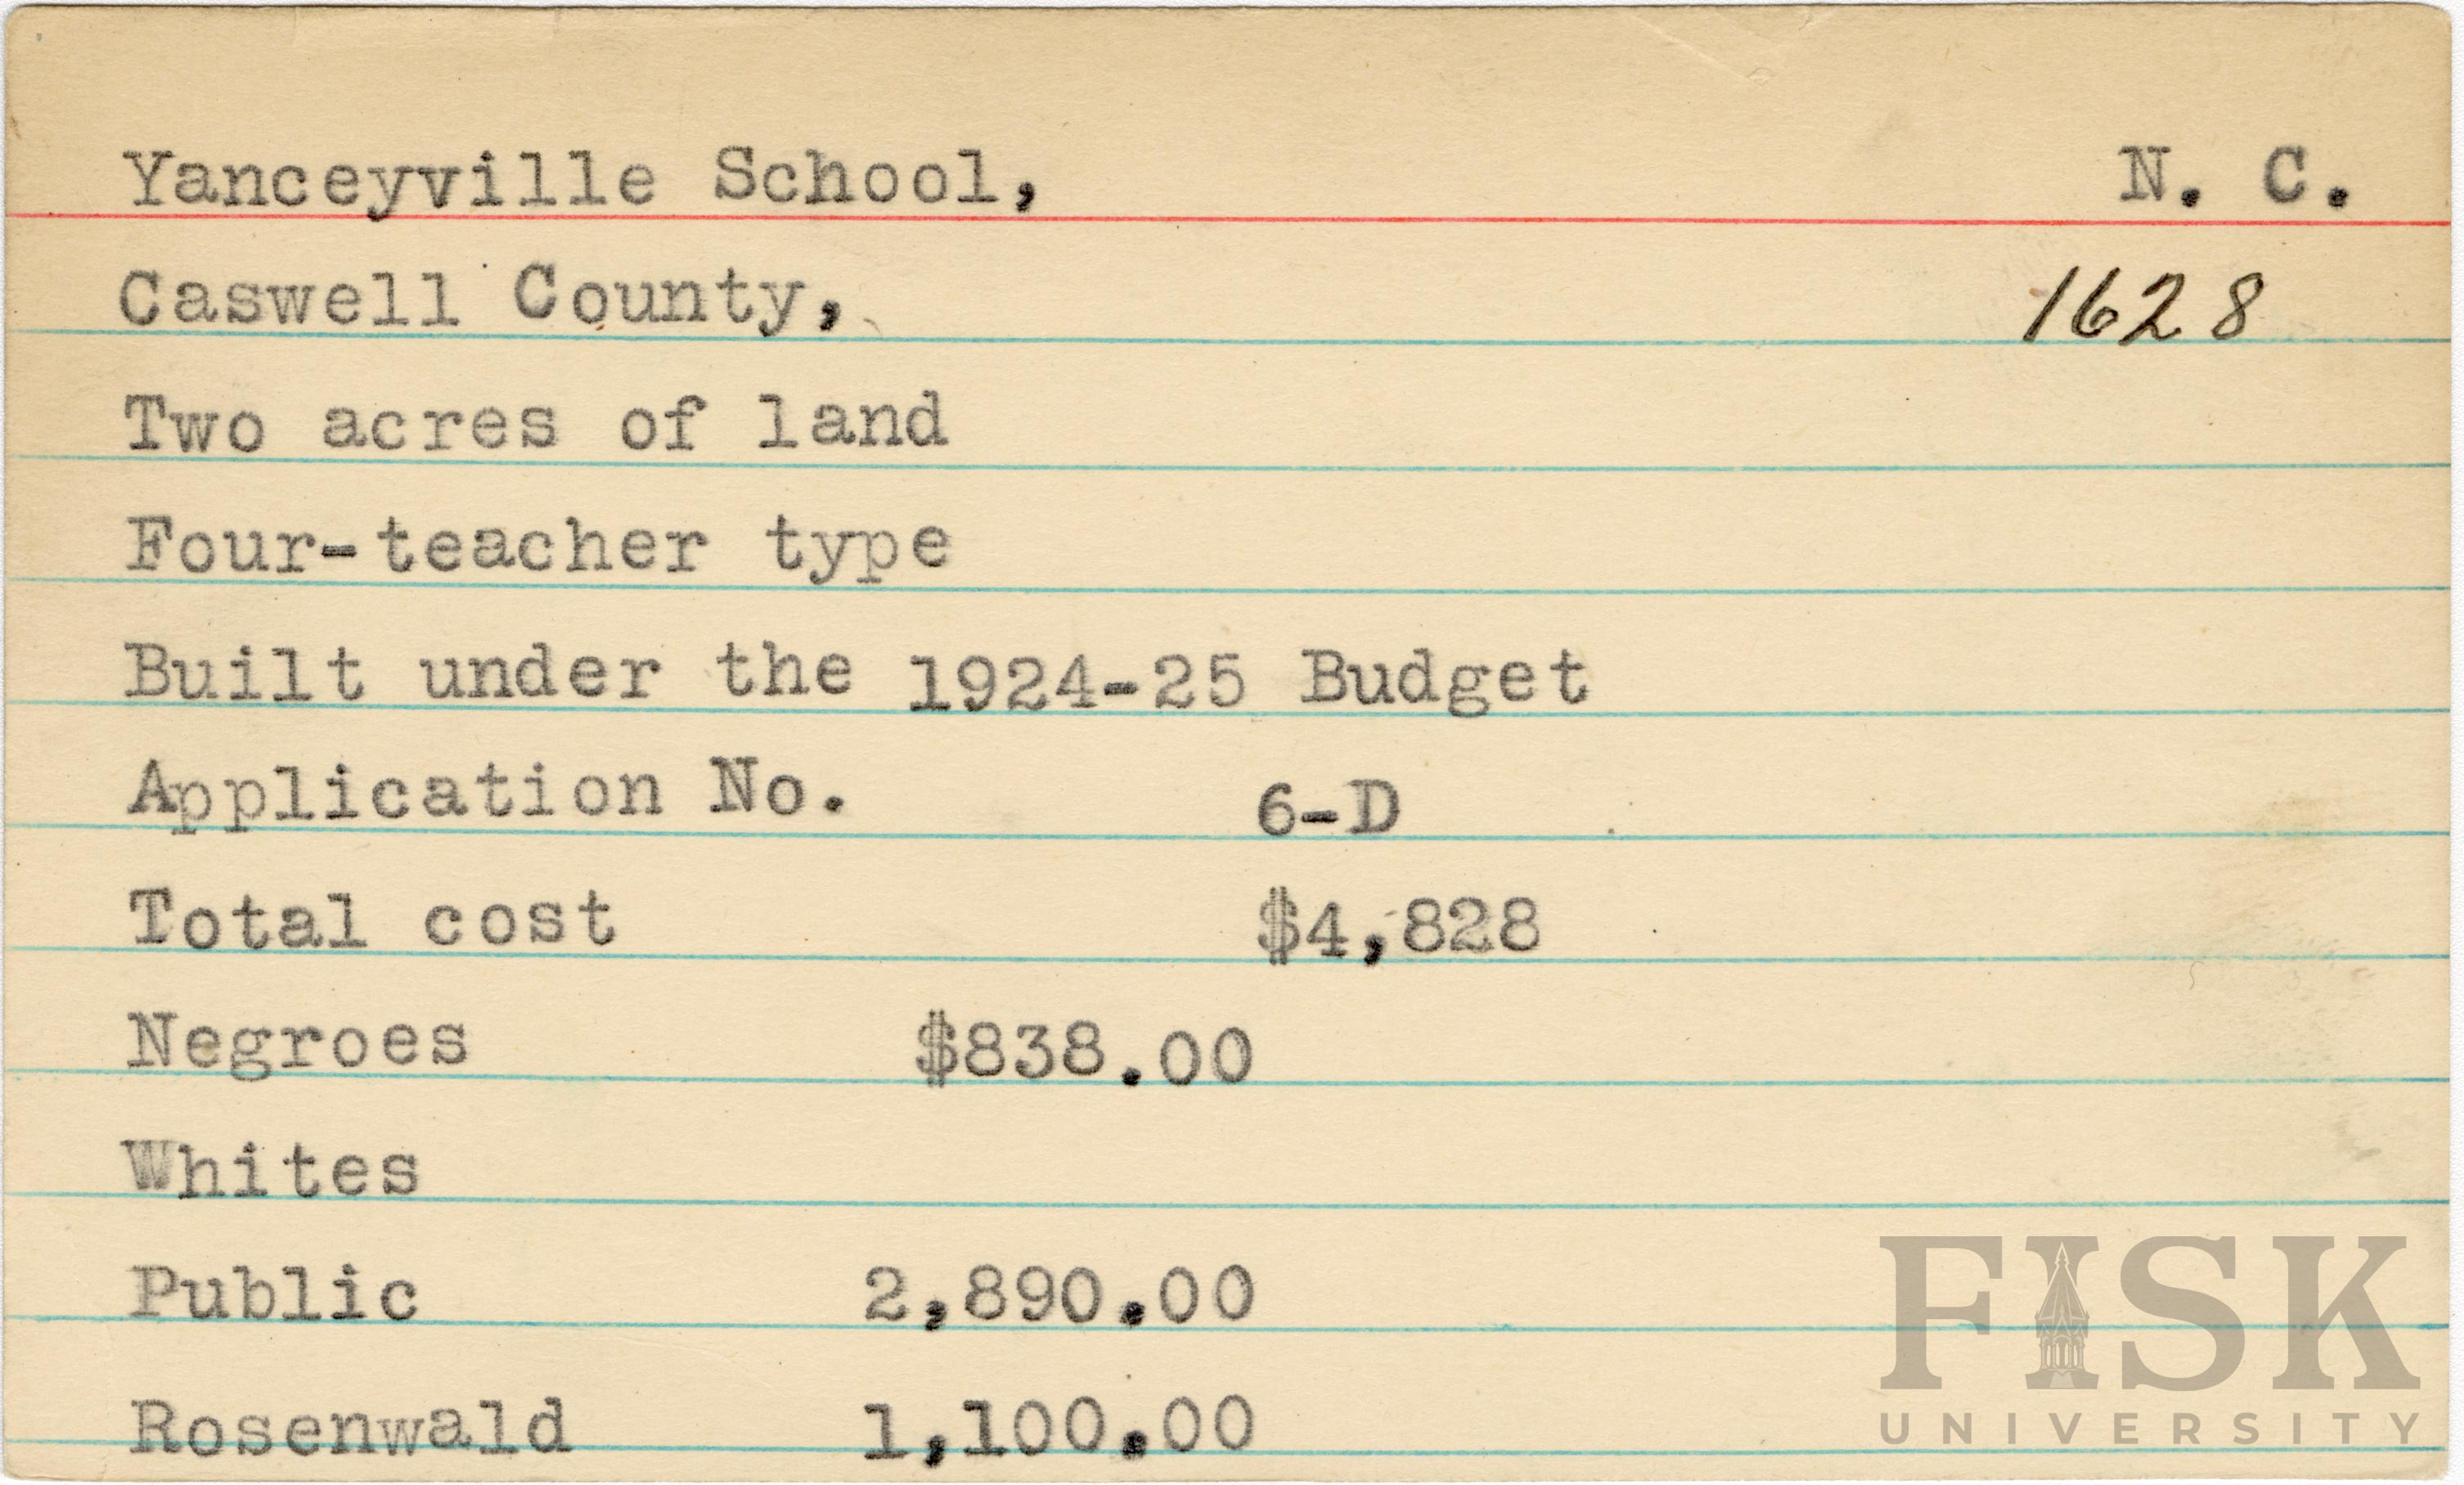 Yanceyville School, N. C.
Caswell County, 1628
Two acres of land
Four-teacher type
Built under the 1924-25 Budget
Application No. 6-D
Total cost $4,828
Negroes $838.00
Whites
Public 2,890.00
Rosenwald 1,100.00
FISK
UNIVERSITY